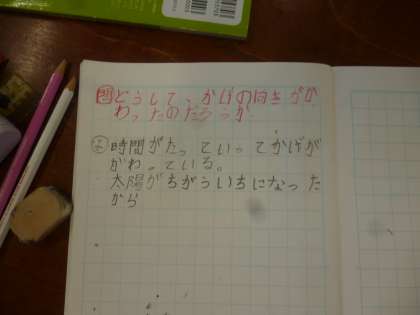 問 どうして、かげの向きがか
わったのだろうか。
予 時間がたっていってかげが
かわっている。
太陽がちがういちになった
から